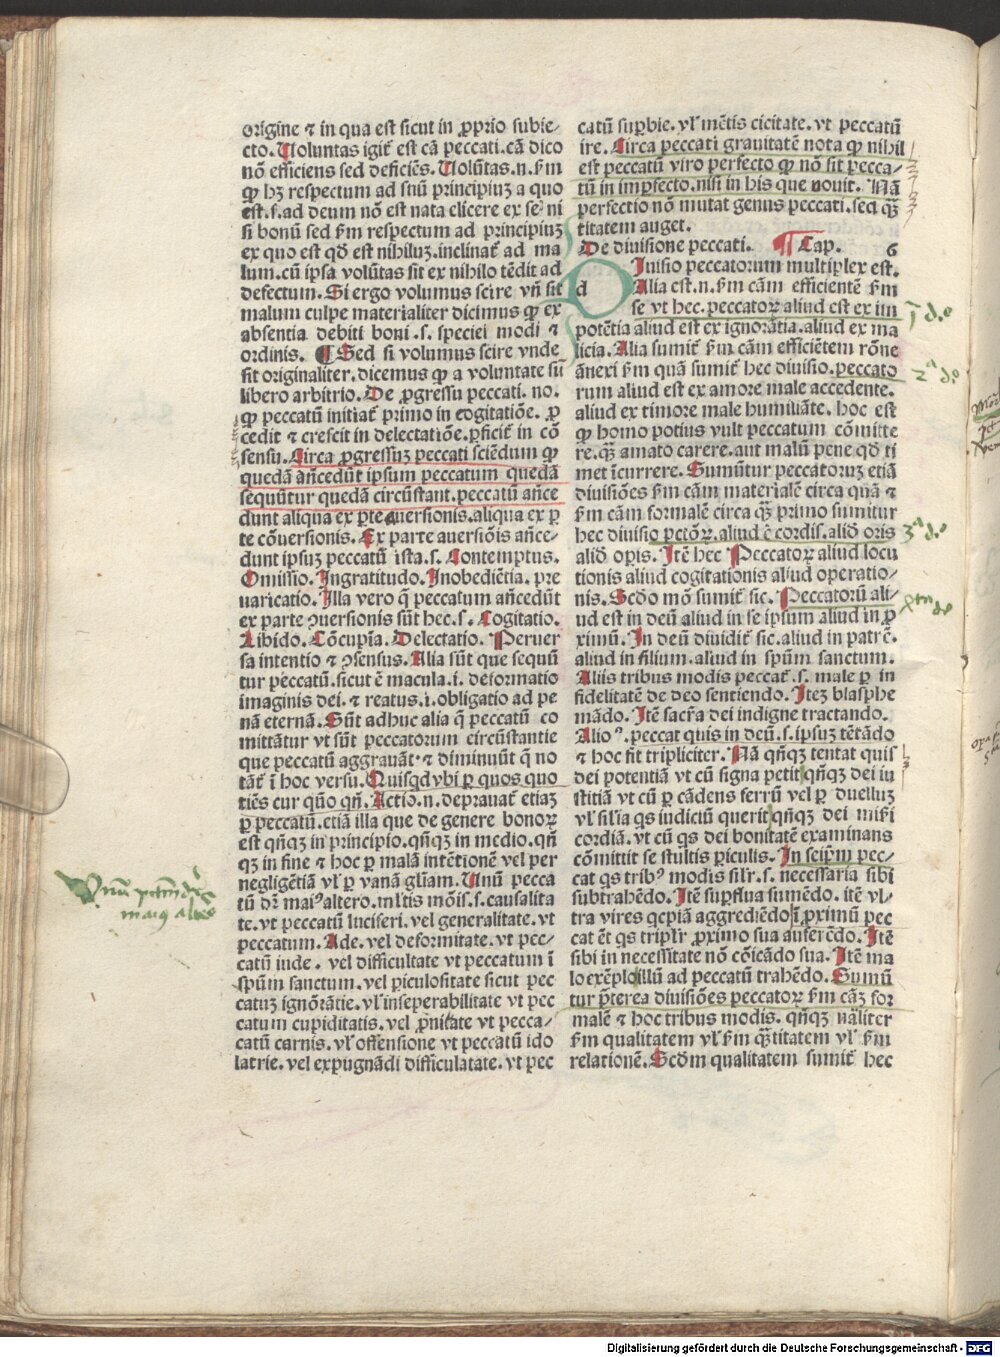 origine ⁊ in qua est sicut in ꝓprio subie-
cto. Uoluntas igit᷑ est cā peccati. cā dico
nō efficiens sed deficiēs. Uolūtas .n. ẜm
ꝙ hꝫ respectum ad suū principiuꝫ a quo
est .s. ad deum nō est nata elicere ex se ni
si bonū sed ẜm respectum ad principiuꝫ
ex quo est qđ est nihiluꝫ. inclinat᷑ ad ma
lum. cū ipsa volūtas sit ex nihilo tēdit ad
defectum. Si ergo volumus scire vñ sit
malum culpe materialiter dicimus ꝙ ex
absentia debiti boni .s. speciei modi ⁊
ordinis. ¶ Sed si volumus scire vnde
sit originaliter. dicemus ꝙ a voluntate sū
libero arbitrio. De ꝓgressu peccati. no.
ꝙ peccatū initiat᷑ primo in cogitatiōe. ꝓ
cedit ⁊ crescit in delectatiōe. ꝑficit᷑ in cō
sensu. Circa ꝓgressuꝫ peccati sciēdum ꝙ
quedā añcedūt ipsum peccatum quedā
sequūtur quedā circūstant. peccatū añce
dunt aliqua ex ꝑte auersionis. aliqua ex ꝑ
te cōuersionis. Ex parte auersiōis añce-
dunt ipsuꝫ peccatū ista .s. Contemptus.
Omissio. Ingratitudo. Inobediētia. pre
uaricatio. Illa vero q̄ peccatum añcedūt
ex parte ꝯuersionis sūt hec .s. Cogitatio.
Libido. Cōcupīa. Delectatio. Peruer
sa intentio ⁊ ꝯsensus. Alia sūt que sequū
tur peccatū. sicut ē macula .i. deformatio
imaginis dei. ⁊ reatus .i. obligatio ad pe
nā eternā. Sūt adhuc alia q̄ peccatū co
mittātur vt sūt peccatorum circūstantie
que peccatū aggrauāt ⁊ diminuūt q̄ no
tāt᷑ ī hoc versu. Quis qđ vbi ꝑ quos quo
tiēs cur qūo qñ. Actio .n. deprauat᷑ etiaꝫ
ꝑ peccatū. etiā illa que de genere bonoꝝ
est qñqꝫ in principio. qñqꝫ in medio. qñ
qꝫ in fine ⁊ hoc ꝑ malā intētionē vel per
negligētiā vl̓ ꝑ vanā gl̄iam. Unū pecca
tū dr̄ maiꝰ altero. ml̓tis mōis .s. causalita
te. vt peccatū luciferi. vel generalitate. vt
peccatum. Ade. vel deformitate. vt pec-
catū iude. vel difficultate vt peccatum ī
spūm sanctum. vel ꝑiculositate sicut pec
catuꝫ ignōrātie. vl̓ inseperabilitate vt pec
catum cupiditatis. vel ꝓnitate vt pecca-
catū carnis. vl̓ offensione vt peccatū ido
latrie. vel expugnādi difficulatate. vt pec
catū suꝑbie. vl̓ mētis cicitate. vt peccatū
ire. Circa peccati grauitatē nota ꝙ nihil
est peccatū viro perfecto ꝙ nō sit pecca-
tū in imꝑfecto. nisi in his que vouit. Nā
perfectio nō mutat genus peccati. sed quā
titatem auget.
De diuisione peccati. ¶ Cap. 6
d Iuisio peccatorum multiplex est.
Alia est .n. ẜm cām efficientē ẜm
se vt hec. peccatoꝝ aliud est ex im
potētia aliud est ex ignorātia. aliud ex ma
licia. Alia sumit᷑ ẜm cām efficiētem rōne
ānexi ẜm quā sumit᷑ hec diuisio. peccato
rum aliud est ex amore male accedente.
aliud ex timore male humiliāte. hoc est
ꝙ homo potius vult peccatum cōmitte
re. quā amato carere. aut malū pene qđ ti
met īcurrere. Sumūtur peccatoruꝫ etiā
diuisiōes ẜm cām materialē circa quā ⁊
ẜm cām formalē circa quā primo sumitur
hec diuisio pctōꝝ. aliud ē cordis. aliđ oris
aliđ oꝑis. Itē hec Peccatoꝝ aliud locu
tionis aliud cogitationis aliud operatio-
nis. Scđo mō sumit᷑ sic. Peccatorū ali-
ud est in deū aliud in se ipsum aliud in ꝓ
ximū. In deū diuidit᷑ sic. aliud in patrē.
aliud in filium. aliud in spūm sanctum.
Aliis tribus modis peccat᷑ .s. male ꝑ in
fidelitatē de deo sentiendo. Iteꝫ blasphe
mādo. Itē sacr̄a dei indigne tractando.
Alioꝰ. peccat quis in deū .s. ipsuꝫ tētādo
⁊ hoc fit tripliciter. Nā qñqꝫ tentat quis
dei potentiā vt cū signa petit qñqꝫ dei iu
stitiā vt cū ꝑ cādens ferrū vel ꝑ duelluꝫ
vl̓ sil̓ia qs iudiciū querit qñqꝫ dei misẽi
cordiā. vt cū qs dei bonitatē examinans
cōmittit se stultis ꝑiculis. In seip̄m pec-
cat qs tribꝰ modis sil̓r .s. necessaria sibi
subtrahēdo. Itē suꝑflua sumēdo. itē vl-
tra vires qcpiā aggrediēdo ī ꝓximū pec
cat ēt qs tripl̓r ꝓximo sua auferēdo. Itē
sibi in necessitate nō cōicādo sua. Itē ma
lo exēplo illū ad peccatū trahēdo. Sumū
tur p̄terea diuisiōes peccatoꝝ ẜm cāꝫ for
malē ⁊ hoc tribus modis. qñqꝫ nāliter
ẜm qualitatem vl̓ ẜm quātitatem vl̓ ẜm
relationē. Scđm qualitatem sumit᷑ hec
Unū pctm̄ dr̄
maiꝰ altero
1 d.o
2ᵃ d.o
3ᵃ d.o
Digitalisierung gefördert durch die Deutsche Forschungsgemeinschaft - DFG